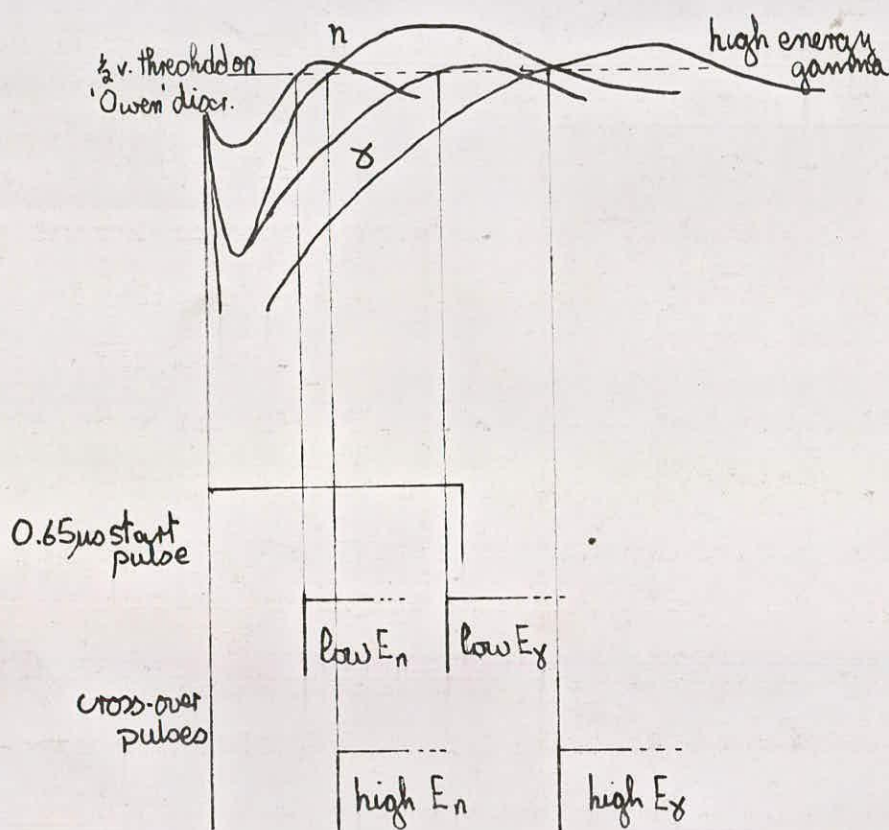 n
½ v. threshold on
'Owen' discr.
high energy
gamma
γ
0.65 μs start
pulse
low Eₙ
low Eᵧ
cross-over
pulses
high Eₙ
high Eᵧ